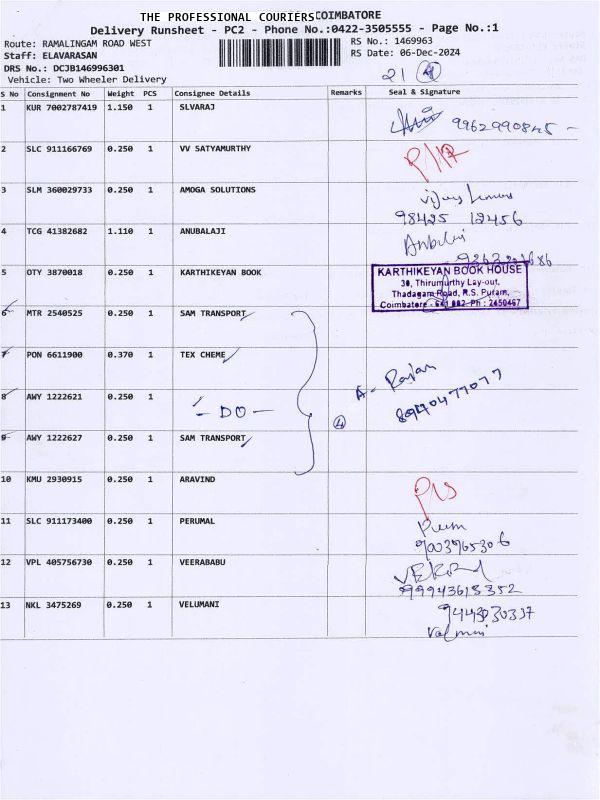 THE PROFESSIONAL COURIERS COIMBATORE
Delivery Runsheet - PC2 - Phone No.:0422-3505555 - Page No.:1
Route: RAMALINGAM ROAD WEST
RS No.: 1469963
Staff: ELAVARASAN
RS Date: 06-Dec-2024
DRS No.: DCJB146996301
Vehicle: Two Wheeler Delivery
21 4
S No Consignment No Weight PCS Consignee Details Remarks Seal & Signature
1 KUR 7002787419 1.150 1 SLVARAJ
2 SLC 911166769 0.250 1 VV SATYAMURTHY
3 SLM 360029733 0.250 1 AMOGA SOLUTIONS
98425 12456
4 TCG 41382682 1.110 1 ANUBALAJI
5 OTY 3870018 0.250 1 KARTHIKEYAN BOOK
KARTHIKEYAN BOOK HOUSE
30, Thirumurthy Lay-out,
Thadagam Road, R.S. Puram,
Coimbatore - 641 002 Ph : 2450467
6 MTR 2540525 0.250 1 SAM TRANSPORT
7 PON 6611900 0.370 1 TEX CHEME
A- Rajan
8 AWY 1222621 0.250 1 - DO -
4
9 AWY 1222627 0.250 1 SAM TRANSPORT
10 KMU 2930915 0.250 1 ARAVIND
11 SLC 911173400 0.250 1 PERUMAL
9003965306
12 VPL 405756730 0.250 1 VEERABABU
13 NKL 3475269 0.250 1 VELUMANI
9443030337